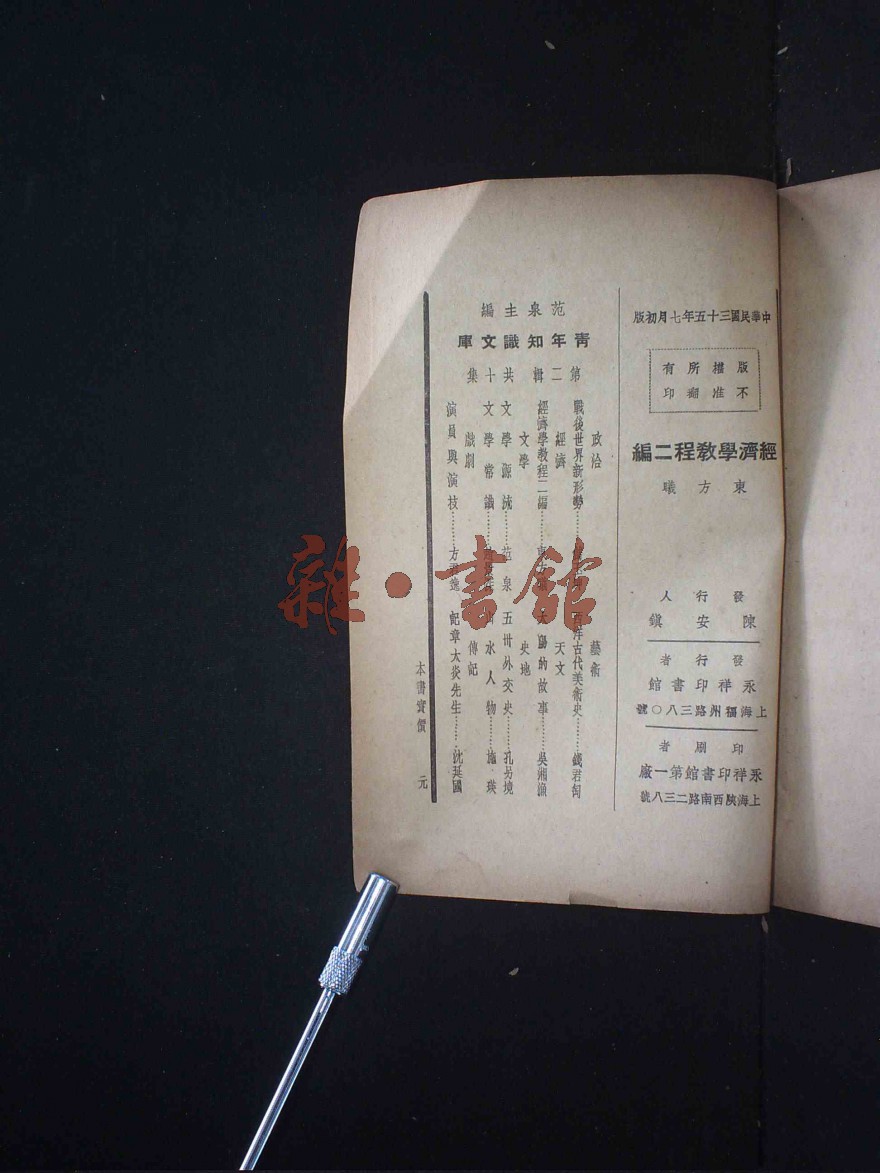 中華民國三十五年七月初版
版權所有
不准翻印
經濟學教程二編
東方曦
發行人
陳安鎮
發行者
永祥印書館
上海福州路三八〇號
印刷者
永祥印書館第一廠
上海陝西南路二三八號
范泉主編
青年知識文庫
第二輯 共十集
政治
戰後世界新形勢
經濟
經濟學教程二編
文學
文學源流 范泉
文學常識
戲劇
演員與演技
藝術
西洋古代美術史 錢君匋
天文
太陽的故事
史地
五卅外交史 孔另境
山水人物 施瑛
傳記
記章太炎先生 沈延國
本書實價 元
雜·書館